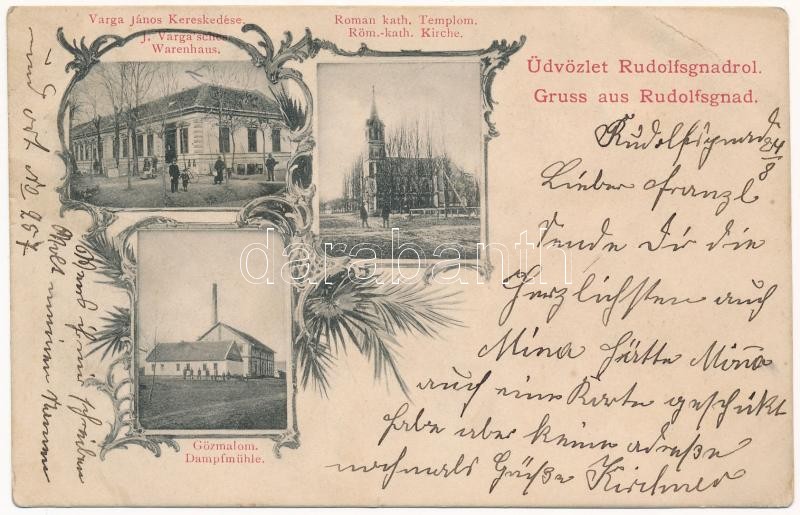 Varga János Kereskedése.
J. Varga'sches
Warenhaus.
Roman kath. Templom.
Röm.-kath. Kirche.
Üdvözlet Rudolfsgnadrol.
Gruss aus Rudolfsgnad.
Gözmalom.
Dampfmühle.
Rudolfsgnad 24/8
Lieber Franzl
Sende Dir die
Herzlichsten auch
Mina hätte
auch eine Karte geschükt
habe aber keine adreße
nochmals Grüße Kirchner
darabanth